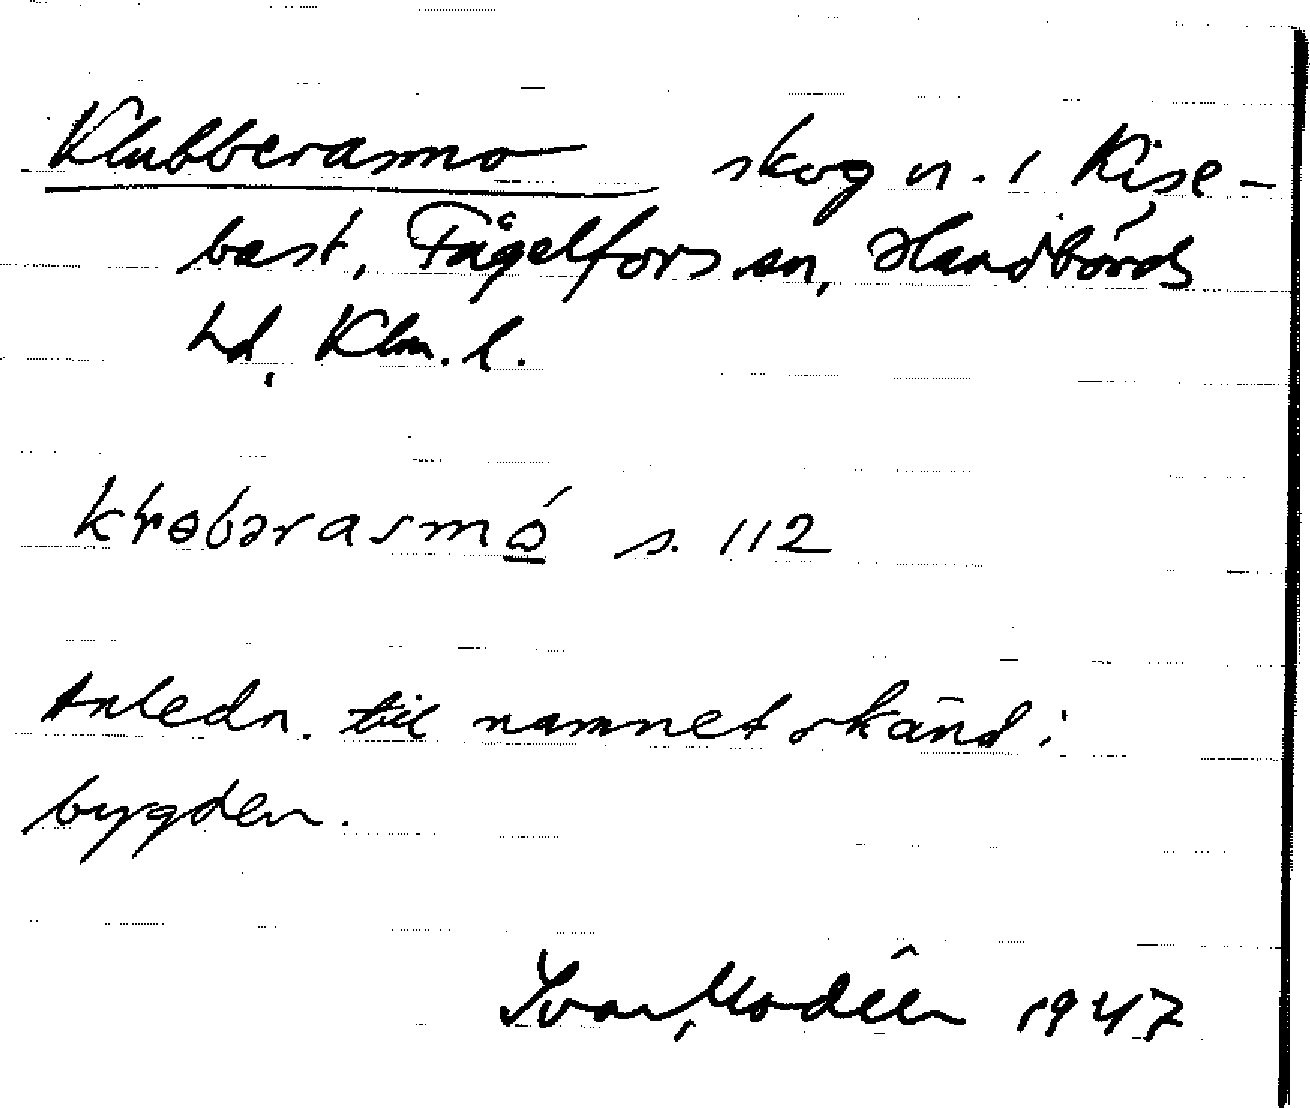 Klubberasmo skogn. i Rise-
bast, Fågelfors sn, Handbörds
hd, Klm. l.
s. 112
Anledn. til namnet okänd i
bygden.
Ivar Modéer 1947